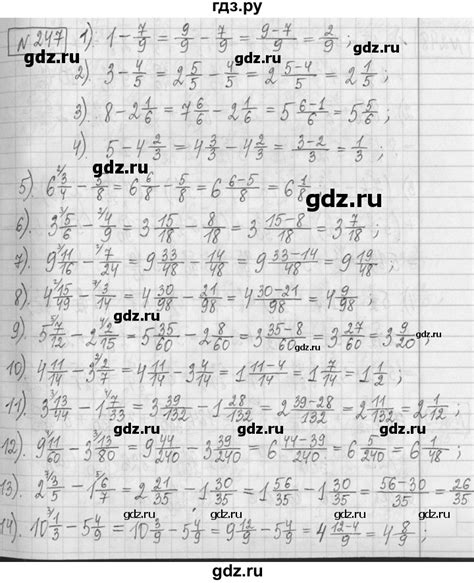 гдз.ру
N 247 1). 1 - 7/9 = 9/9 - 7/9 = (9-7)/9 = 2/9 ;
gdz.ru gdz.ru
2). 3 - 4/5 = 2 5/5 - 4/5 = 2 (5-4)/5 = 2 1/5 ;
3). 8 - 2 1/6 = 7 6/6 - 2 1/6 = 5 (6-1)/6 = 5 5/6 ;
gdz.ru
4). 5 - 4 2/3 = 4 3/3 - 4 2/3 = (3-2)/3 = 1/3 ;
gdz.ru
5). 6 3/4 - 5/8 = 6 6/8 - 5/8 = 6 (6-5)/8 = 6 1/8
gdz.ru
6). 3 5/6 - 4/9 = 3 15/18 - 8/18 = 3 (15-8)/18 = 3 7/18 ;
gdz.ru
7). 9 11/16 - 7/24 = 9 33/48 - 14/48 = 9 (33-14)/48 = 9 19/48 ;
gdz.ru
8). 4 15/49 - 3/14 = 4 30/98 - 21/98 = 4 (30-21)/98 = 4 9/98 ;
gdz.ru
9). 5 7/12 - 2 2/15 = 5 35/60 - 2 8/60 = 3 (35-8)/60 = 3 27/60 = 3 9/20 ;
gdz.ru
10). 4 11/14 - 3 2/7 = 4 11/14 - 3 4/14 = 1 (11-4)/14 = 1 7/14 = 1 1/2 ;
gdz.ru
11). 3 13/44 - 1 7/33 = 3 39/132 - 1 28/132 = 2 (39-28)/132 = 2 11/132 = 2 1/12 ;
gdz.ru
12). 9 11/60 - 3 13/80 = 9 44/240 - 3 39/240 = 6 (44-39)/240 = 6 5/240 = 6 1/48 ;
gdz.ru
13). 2 3/5 - 1 6/7 = 2 21/35 - 1 30/35 = 1 56/35 - 1 30/35 = (56-30)/35 = 26/35
gdz.ru
14). 10 1/3 - 5 4/9 = 10 3/9 - 5 4/9 = 9 12/9 - 5 4/9 = 4 (12-4)/9 = 4 8/9 ;
gdz.ru